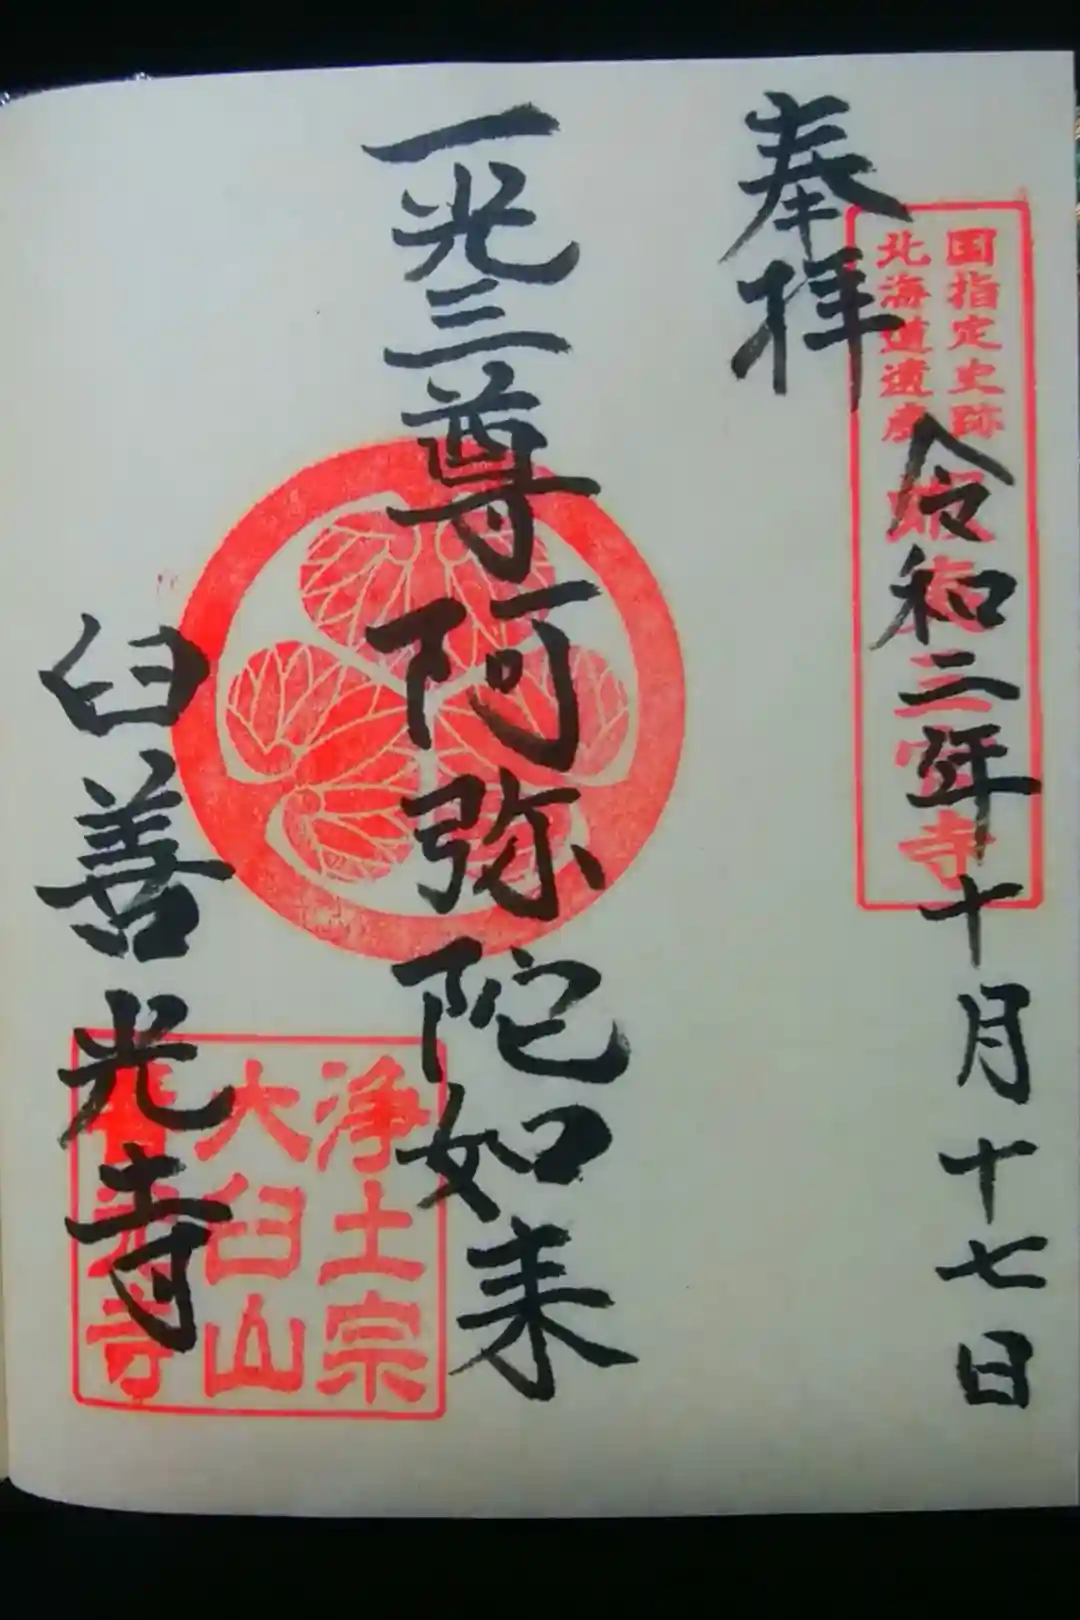 奉拝
国指定史跡
北海道遺産
令和二年十月十七日
一光三尊阿弥陀如来
臼善光寺
浄土宗
大臼山
善光寺